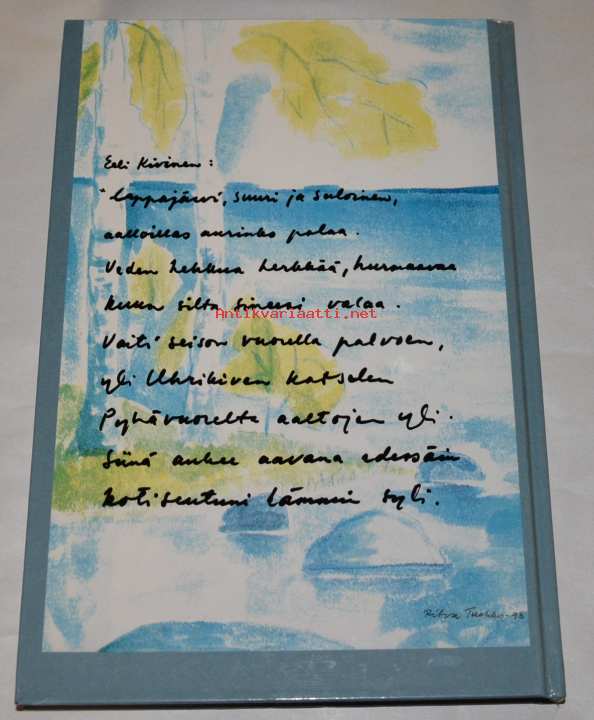 Eeli Kivinen:
"Lappajärvi, suuri ja suloinen,
aalloillas aurinko palaa.
Veden hehkua herkkää, hurmaavaa
kuun silta sineesi valaa.
Antikvariaatti.net
Vaiti seison vuorella palvoen,
yli Uhrikiven katselen
Pyhävuorelta aaltojen yli.
Siinä aukee aavana edessäin
kotiseutuni lämmin syli.
Ritva -98